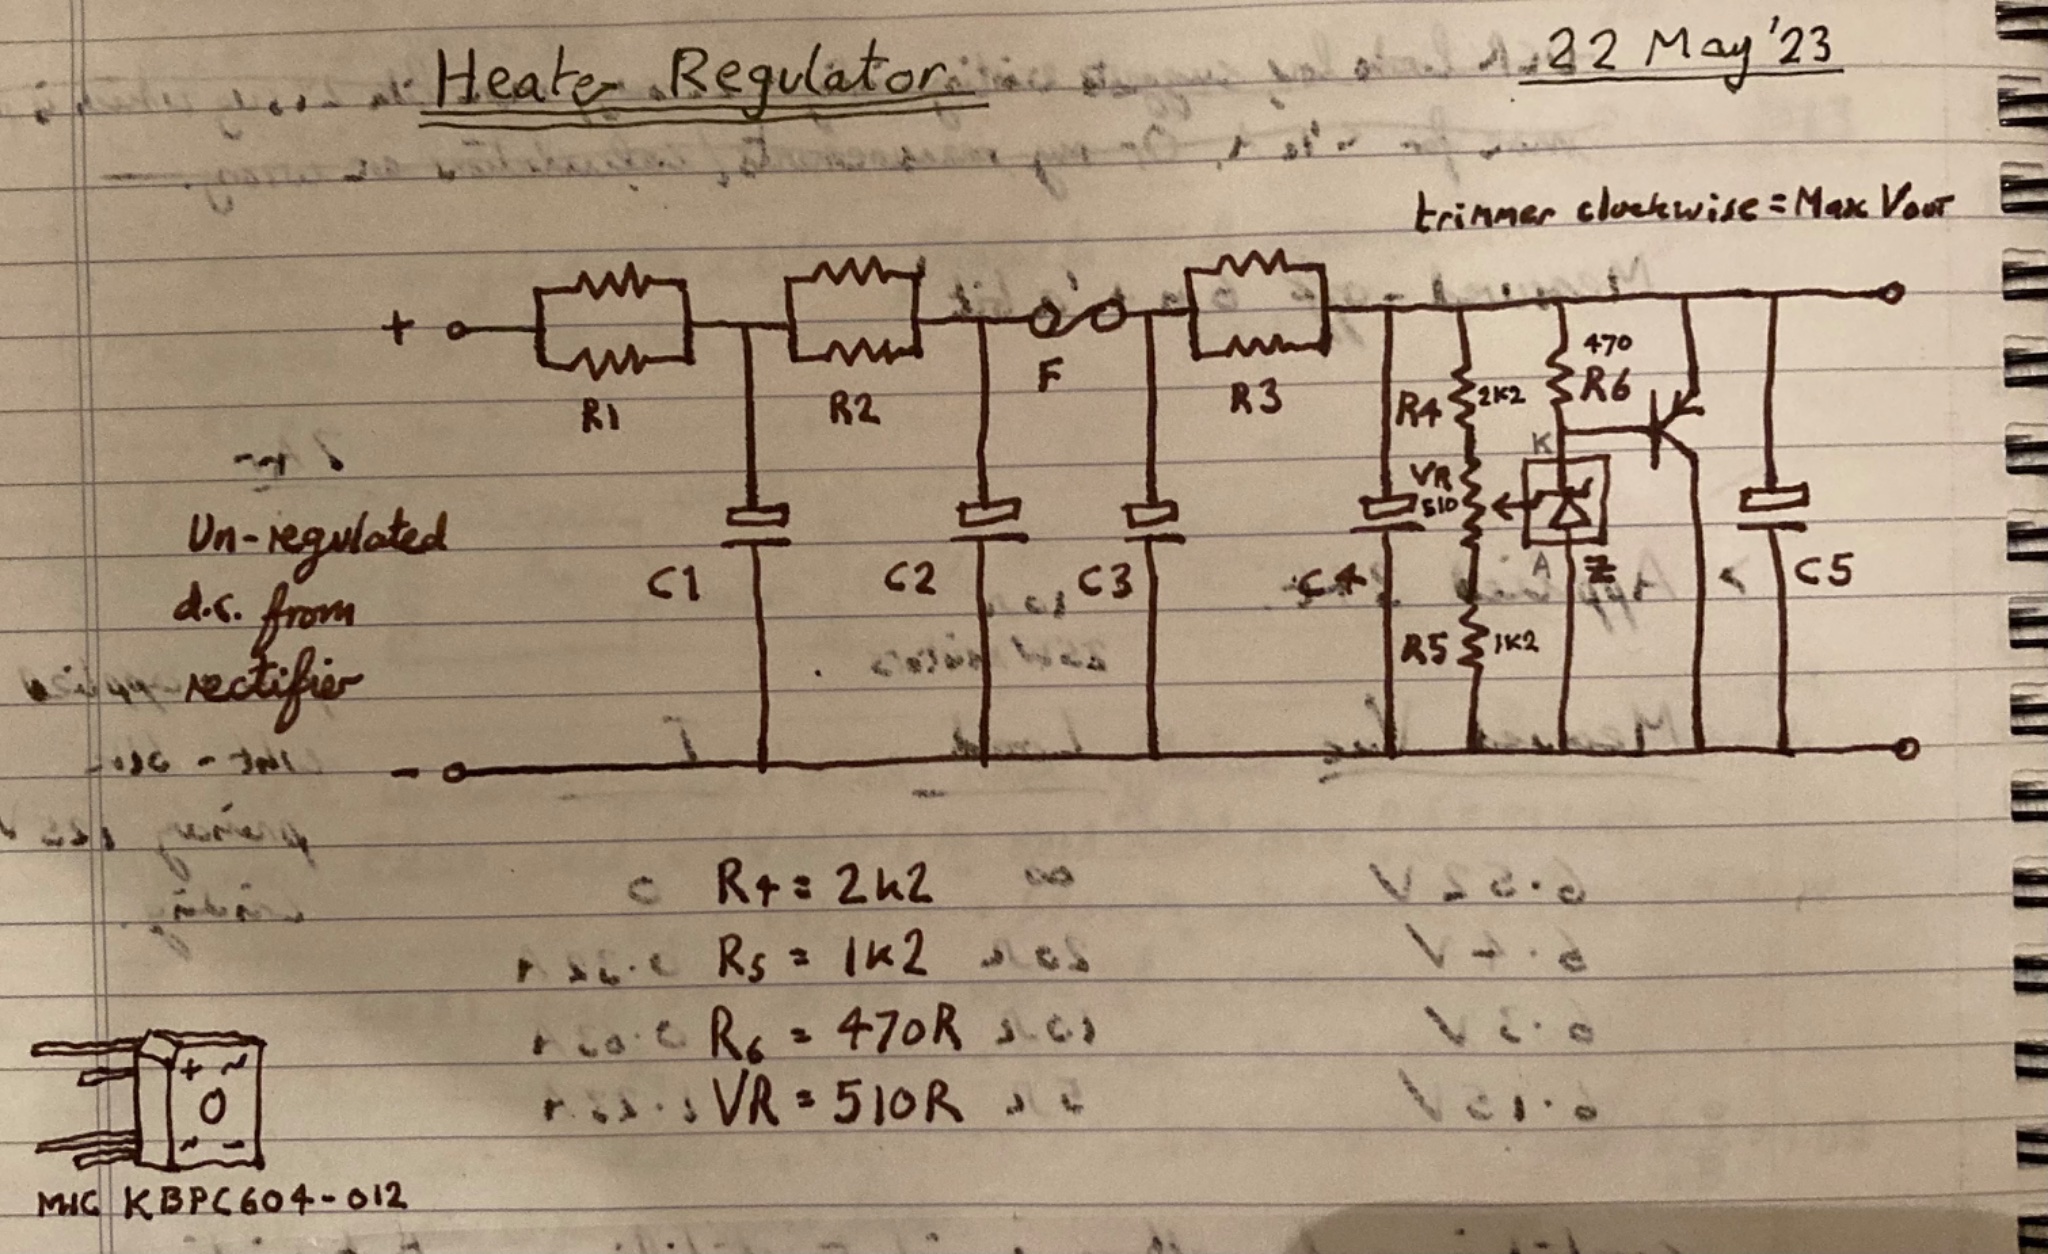 Heater Regulator
22 May '23
trimmer clockwise = Max Vout
+
R1
R2
F
R3
R4
2K2
470
R6
K
VR
510
A
Z
C1
C2
C3
C4
C5
R5
1K2
Un-regulated
d.c. from
rectifier
-
R4 = 2k2
R5 = 1k2
R6 = 470R
VR = 510R
+ ~
~ -
MIC KBPC604-012